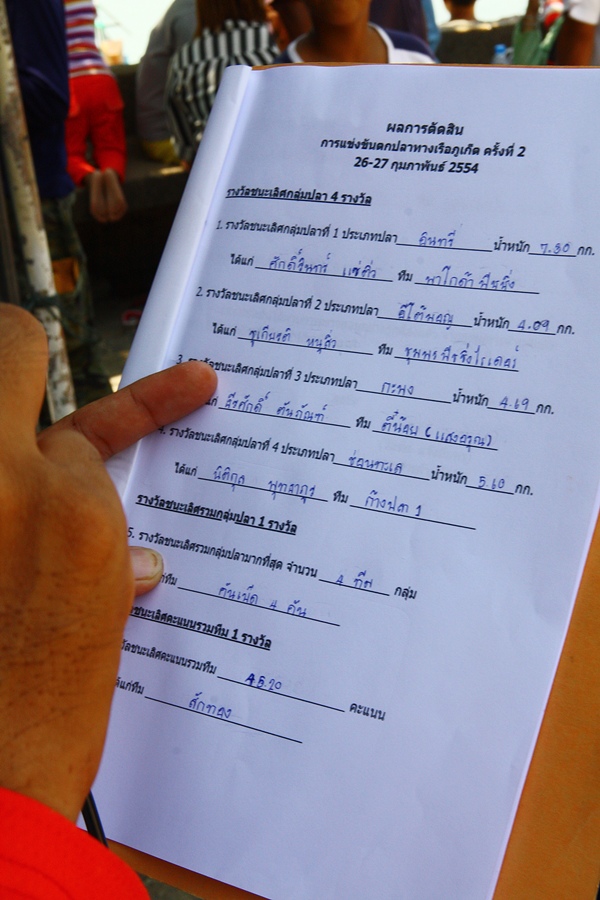 ผลการตัดสิน
การแข่งขันตกปลาทางเรือภูเก็ต ครั้งที่ 2
26-27 กุมภาพันธ์ 2554
รางวัลชนะเลิศกลุ่มปลา 4 รางวัล
1. รางวัลชนะเลิศกลุ่มปลาที่ 1 ประเภทปลา อินทรี น้ำหนัก 7.30 กก.
ได้แก่ ศักดิ์รินทร์ แซ่ติ่ว ทีม พาโกด้า ฟิชชิ่ง
2. รางวัลชนะเลิศกลุ่มปลาที่ 2 ประเภทปลา อีโต้มอญ น้ำหนัก 4.09 กก.
ได้แก่ ชูเกียรติ หนูติ่ว ทีม ชุมพรฟิชชิ่งไรเดอร์
3. รางวัลชนะเลิศกลุ่มปลาที่ 3 ประเภทปลา กะพง น้ำหนัก 4.69 กก.
แก่ ธีรศักดิ์ ตันภัณฑ์ ทีม ตี๋น้อย (แสงอรุณ)
4. รางวัลชนะเลิศกลุ่มปลาที่ 4 ประเภทปลา ช่อนทะเล น้ำหนัก 5.60 กก.
ได้แก่ นิติกุล ทีม ก้างปลา 1
รางวัลชนะเลิศรวมกลุ่มปลา 1 รางวัล
5. รางวัลชนะเลิศรวมกลุ่มปลามากที่สุด จำนวน 4 กลุ่ม
ทีม คันเบ็ด 4 คัน
ชนะเลิศคะแนนรวมทีม 1 รางวัล
วัลชนะเลิศคะแนนรวมทีม 45.70 คะแนน
ด้แก่ทีม ศักทอง